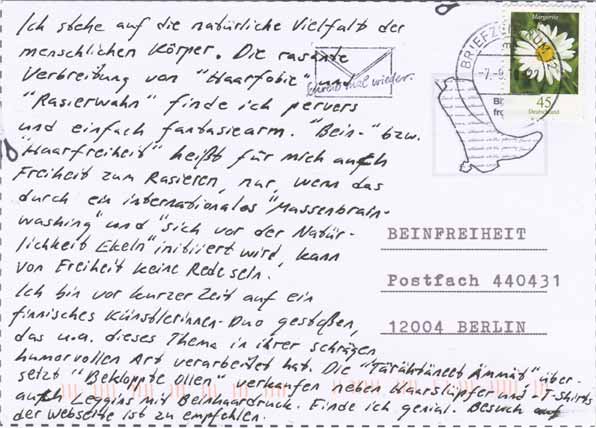 Ich stehe auf die natürliche Vielfalt der
menschlichen Körper. Die rasante
Verbreitung von "Haarfobie" und
"Rasierwahn" finde ich pervers
und einfach fantasiearm. "Bein-" bzw.
"Haarfreiheit" heißt für mich auch
Freiheit zum Rasieren, nur, wenn das
durch ein internationales "Massenbrain-
washing" und "sich vor der Natür-
lichkeit Ekeln" initiiert wird, kann
von Freiheit keine Rede sein.
Ich bin vor kurzer Zeit auf ein
finnisches Künstlerinnen-Duo gestoßen,
das u.a. dieses Thema in ihrer schrägen,
humorvollen Art verarbeitet hat. Die "Tärähtäneet Ämmät" über-
setzt "Bekloppte Ollen" verkaufen neben Haarslipfer und -T-Shirts
auch Leggins mit Beinhaardruck. Finde ich genial. Besuch auf
der Webseite ist zu empfehlen.
Schreib mal wieder.
BRIEFZENTRUM
Margerite
45
Deutschland
BEINFREIHEIT
Postfach 440431
12004 BERLIN